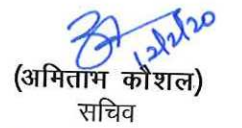 12/2/20
(अमिताभ कौशल)
सचिव